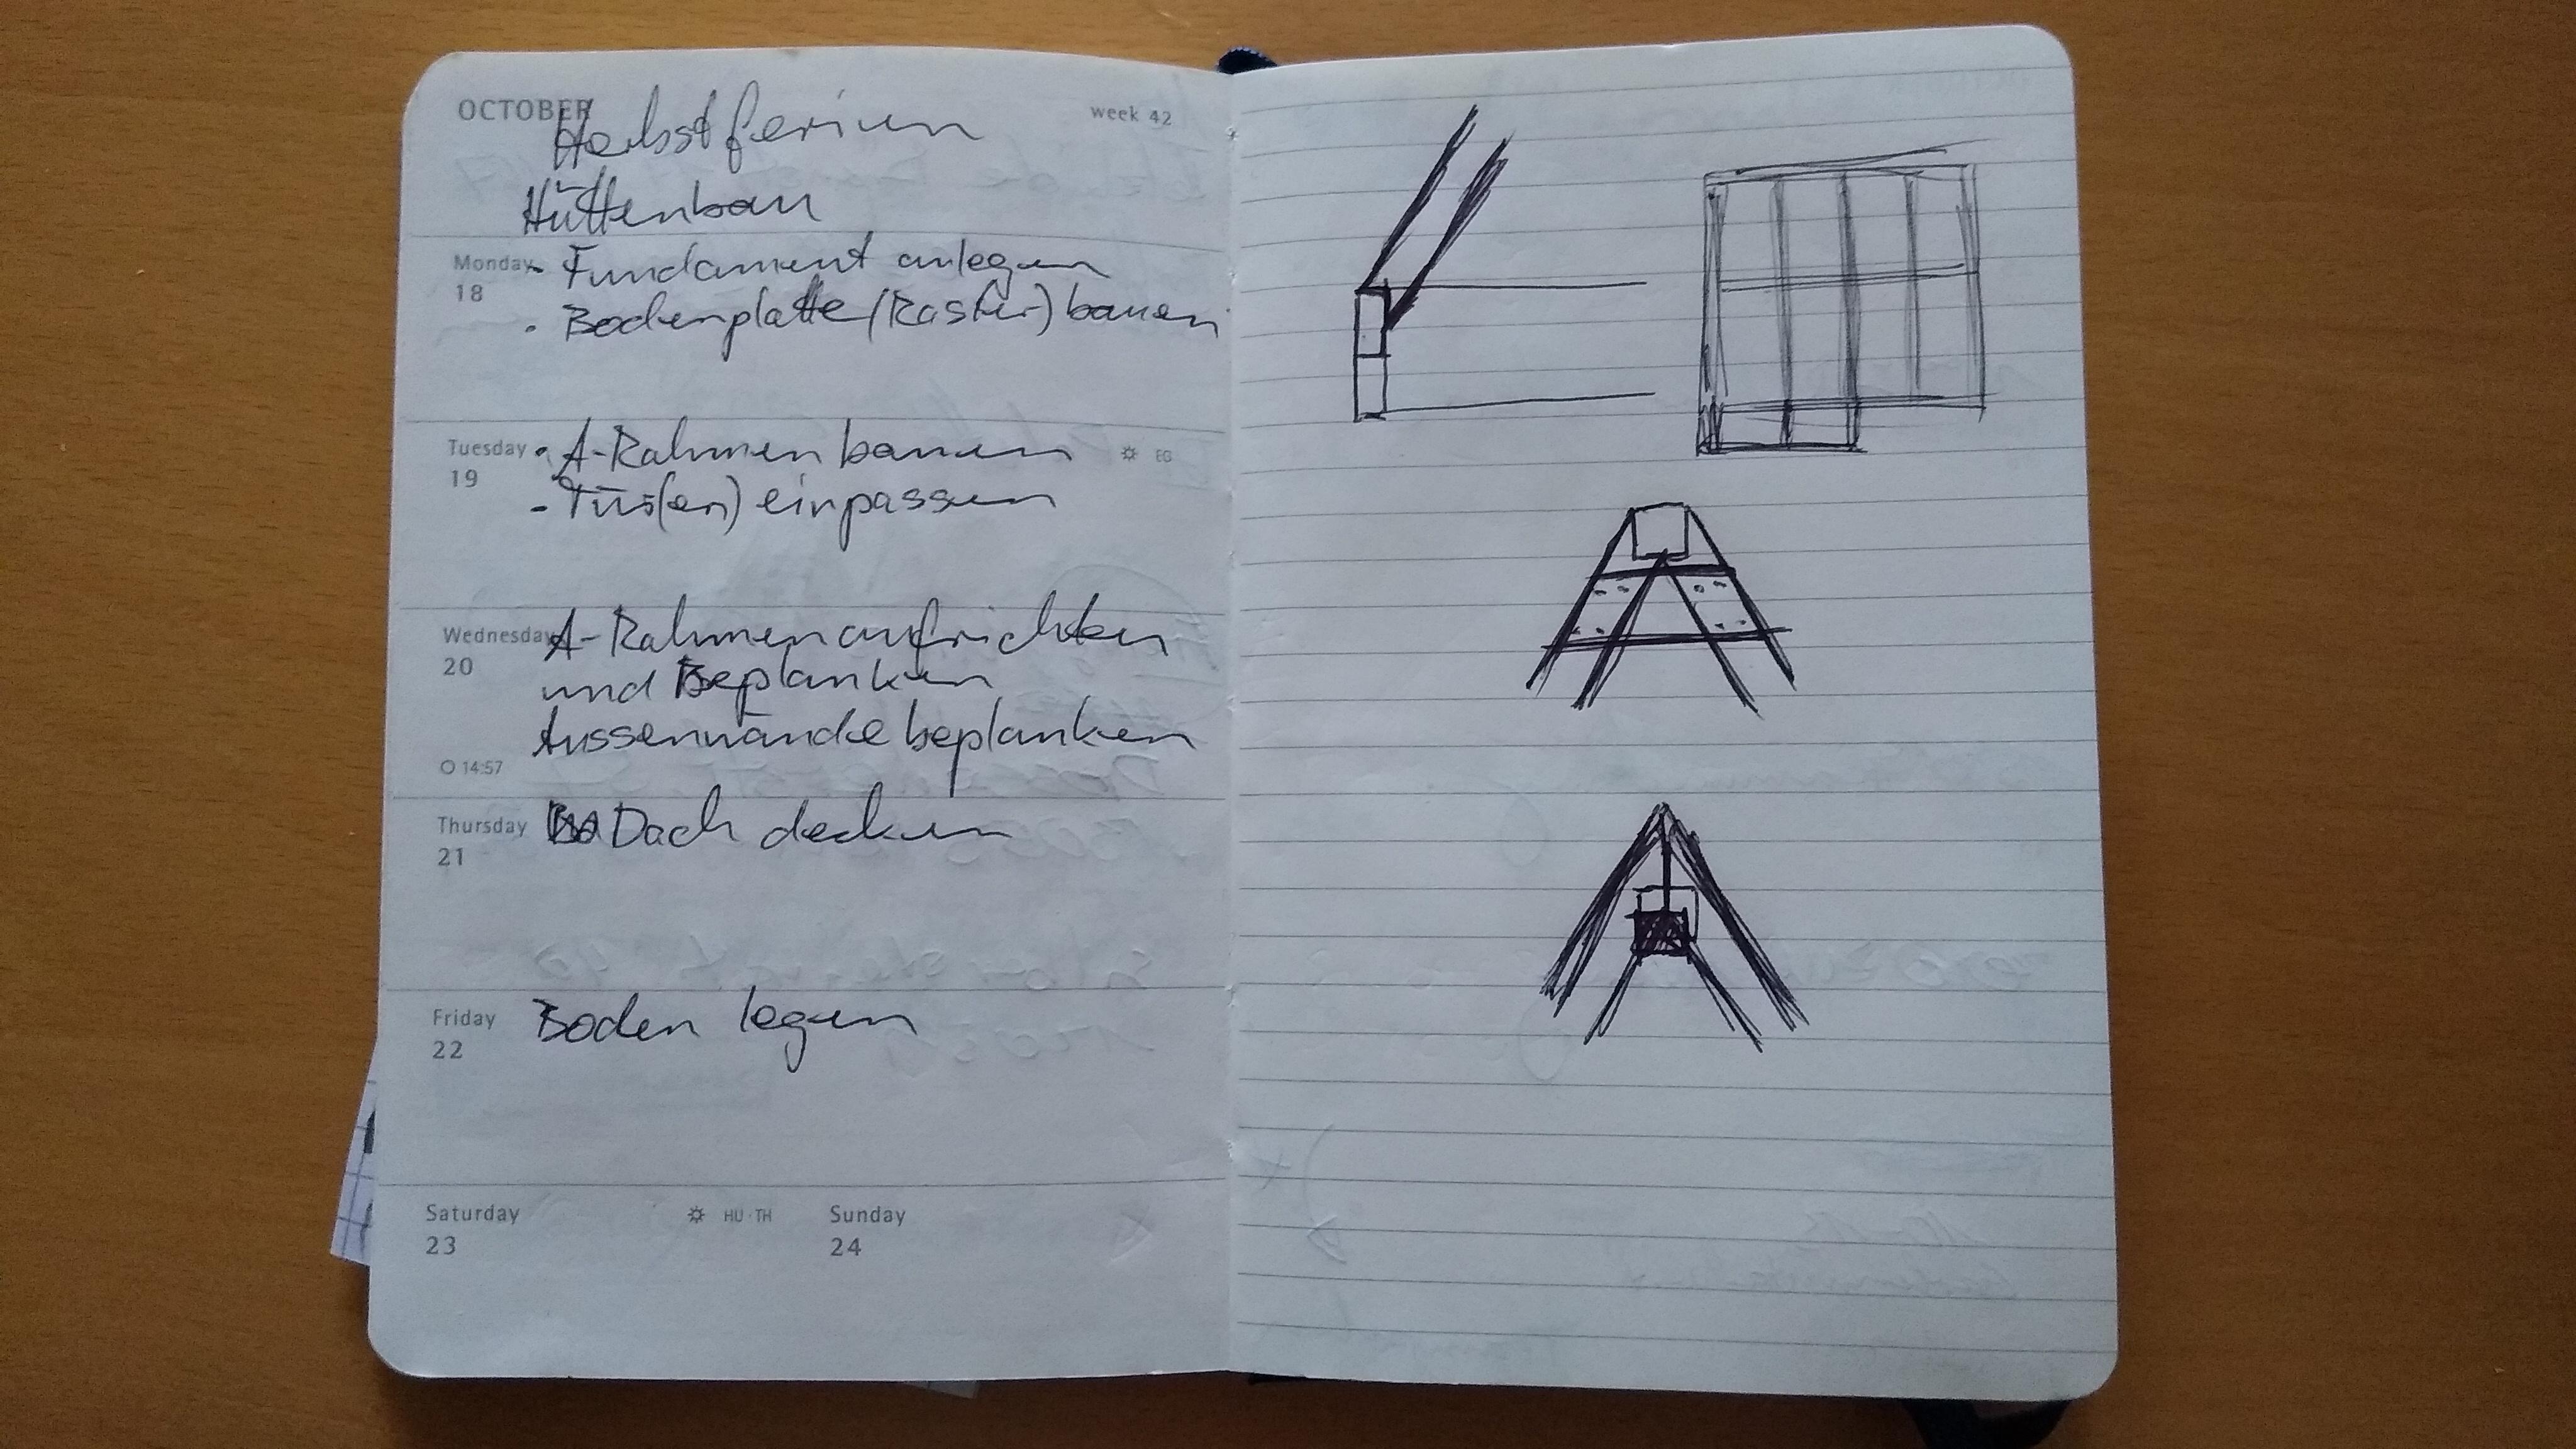 OCTOBER
week 42
Herbstferien
Hüttenbau
Monday
18
- Fundament anlegen
- Bodenplatte (Raster) bauen
Tuesday
19
• A-Rahmen bauen
☼ EG
- Tür(en) einpassen
Wednesday
20
A-Rahmen aufrichten
und Beplanken
Aussenwände beplanken
○ 14:57
Thursday
21
Dach decken
Friday
22
Boden legen
Saturday
23
☼ HU · TH
Sunday
24